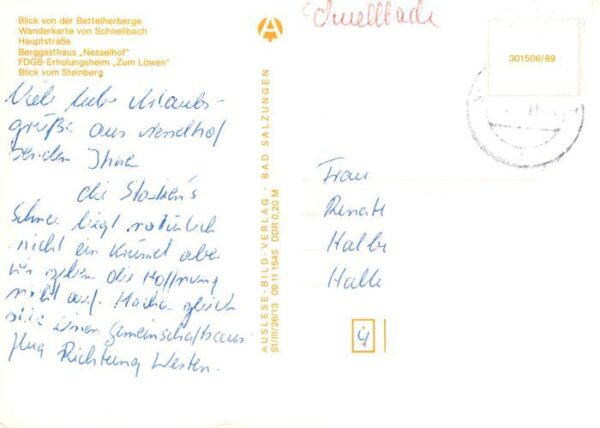 Blick von der Bettelherberge
Wanderkarte von Schnellbach
Hauptstraße
Berggasthaus „Nesselhof“
FDGB-Erholungsheim „Zum Löwen“
Blick vom Steinberg
Viele liebe Urlaubs-
grüße aus Nesselhof
senden Ihnen
die
Schnee liegt natürlich
nicht ein Krümel aber
wir geben die Hoffnung
nicht auf. Machen gleich
einen gemeinschaftsaus-
flug Richtung Westen.
AUSLESE-BILD-VERLAG · BAD SALZUNGEN
St/III/26/13 09 11 1545 DDR 0,20 M
Schnellbach
301506/89
Frau
Renate
Kalbe
Halle
4